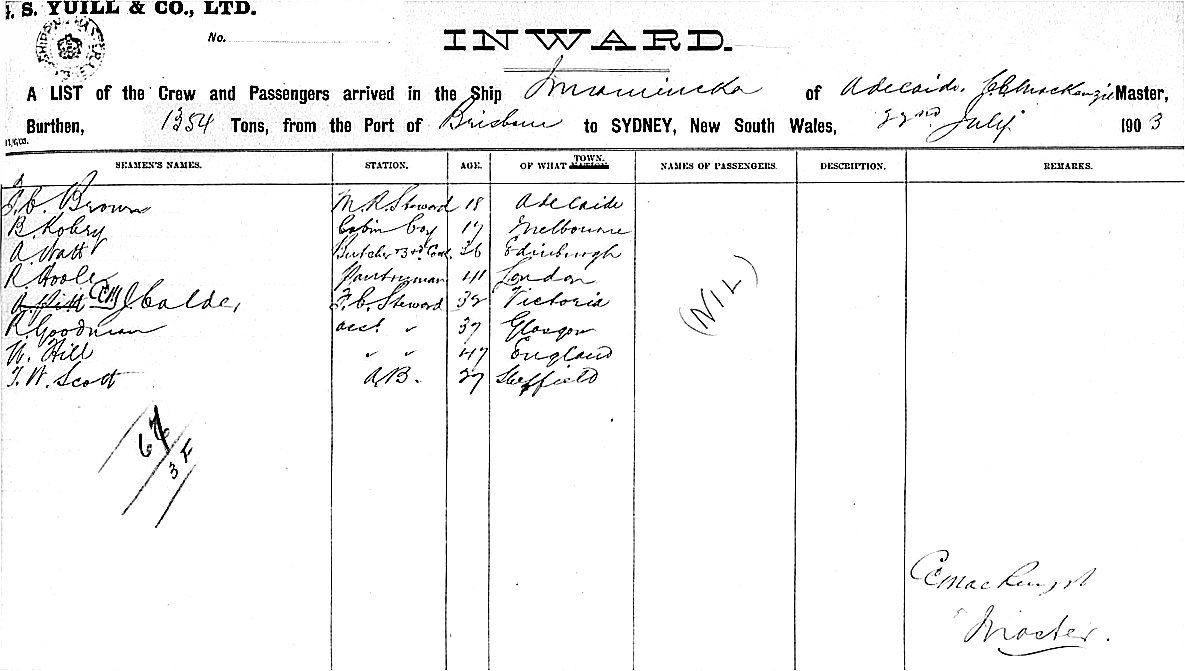 . S. YUILL & CO., LTD.
No.
INWARD.
A LIST of the Crew and Passengers arrived in the Ship Innamincka of Adelaide. C C Mackenzie Master,
Burthen, 1354 Tons, from the Port of Brisbane to SYDNEY, New South Wales, 22nd July 1903
SEAMEN'S NAMES. STATION. AGE. OF WHAT TOWN. NAMES OF PASSENGERS. DESCRIPTION. REMARKS.
Brown M.R. Steward 18 Adelaide
B. Cabin boy 17 Melbourne
A. Watt Butcher & 3rd Cook 36 Edinburgh
R Hoole Pantryman 41 London
J. Calder F.C. Steward 32 Victoria
R Goodman asst. " 37 Glasgow
Hill " " 47 England
T. W. Scott A.B. 27 Sheffield
(NIL)
3 F
Master.